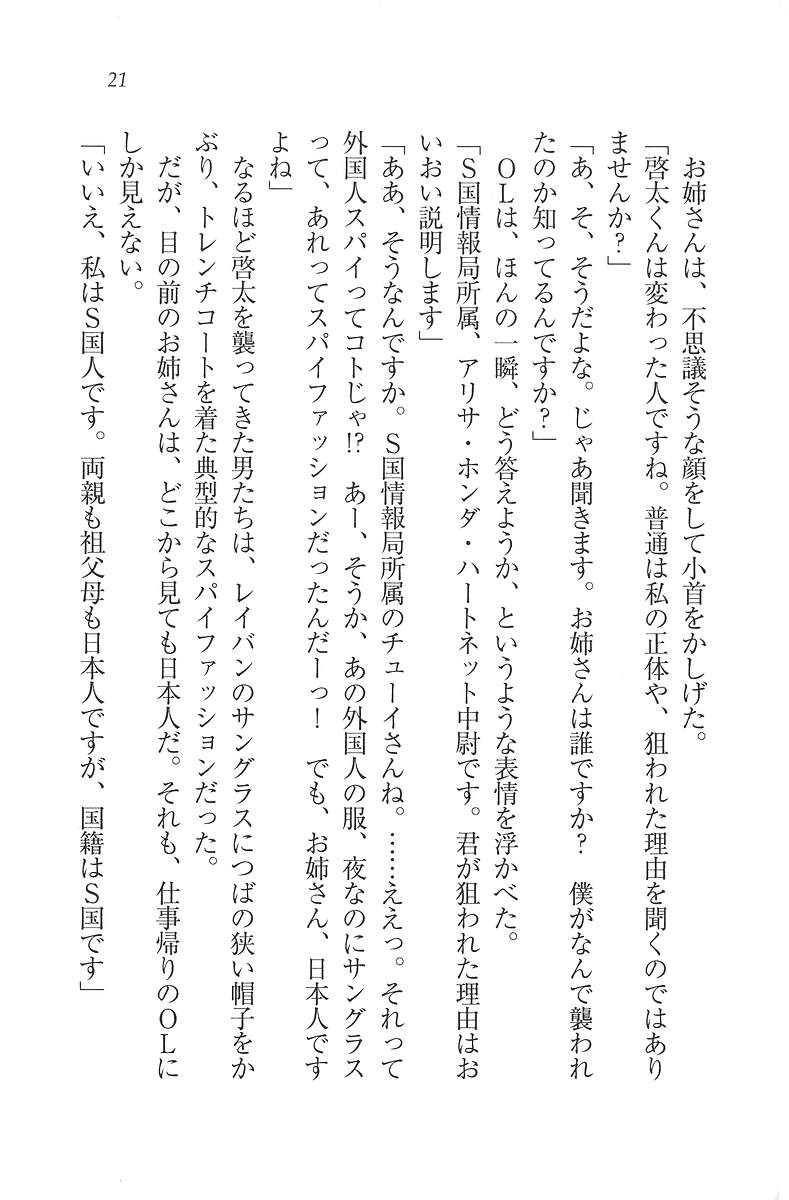 21
　お姉さんは、不思議そうな顔をして小首をかしげた。
「啓太くんは変わった人ですね。普通は私の正体や、狙われた理由を聞くのではあり
ませんか？」
「あ、そ、そうだよな。じゃあ聞きます。お姉さんは誰ですか？　僕がなんで襲われ
たのか知ってるんですか？」
　ＯＬは、ほんの一瞬、どう答えようか、というような表情を浮かべた。
「Ｓ国情報局所属、アリサ・ホンダ・ハートネット中尉です。君が狙われた理由はお
いおい説明します」
「ああ、そうなんですか。Ｓ国情報局所属のチューイさんね。……ええっ。それって
外国人スパイってコトじゃ!?　あー、そうか、あの外国人の服、夜なのにサングラス
って、あれってスパイファッションだったんだーっ！　でも、お姉さん、日本人です
よね」
　なるほど啓太を襲ってきた男たちは、レイバンのサングラスにつばの狭い帽子をか
ぶり、トレンチコートを着た典型的なスパイファッションだった。
　だが、目の前のお姉さんは、どこから見ても日本人だ。それも、仕事帰りのＯＬに
しか見えない。
「いいえ、私はＳ国人です。両親も祖父母も日本人ですが、国籍はＳ国です」